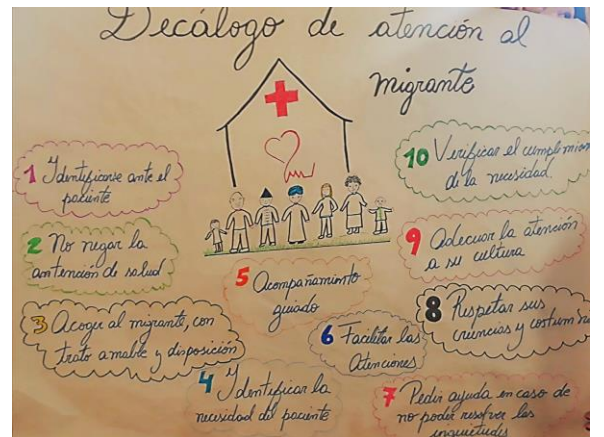 Decálogo de atención al
migrante
1 Identificarse ante el
paciente
2 No negar la
antención de salud
3 Acoger al migrante, con
trato amable y disposición
4 Identificar la
necesidad del paciente
5 Acompañamiento
guiado
6 Facilitar las
Atenciones
7 Pedir ayuda en caso de
no poder resolver las
inquietudes
8 Respetar sus
creencias y
9 Adecuar la atención
a su cultura
10 Verificar el
de la necesidad.